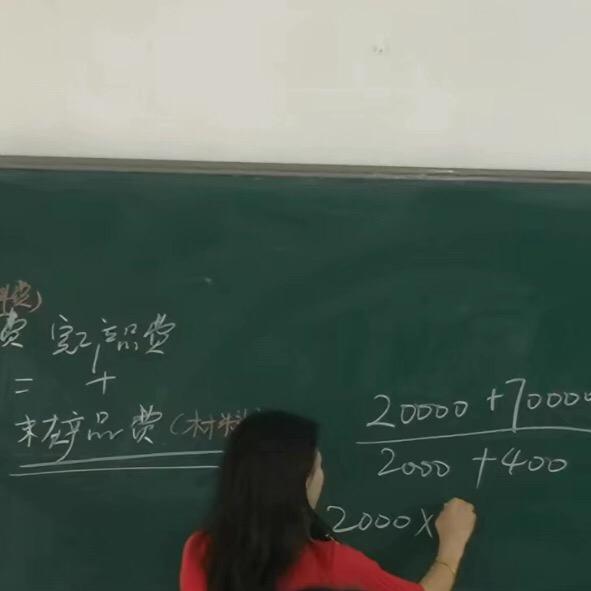 费)
费 完工产品费
= +
末在产品费(材料
20000+70000
2000+400
2000×